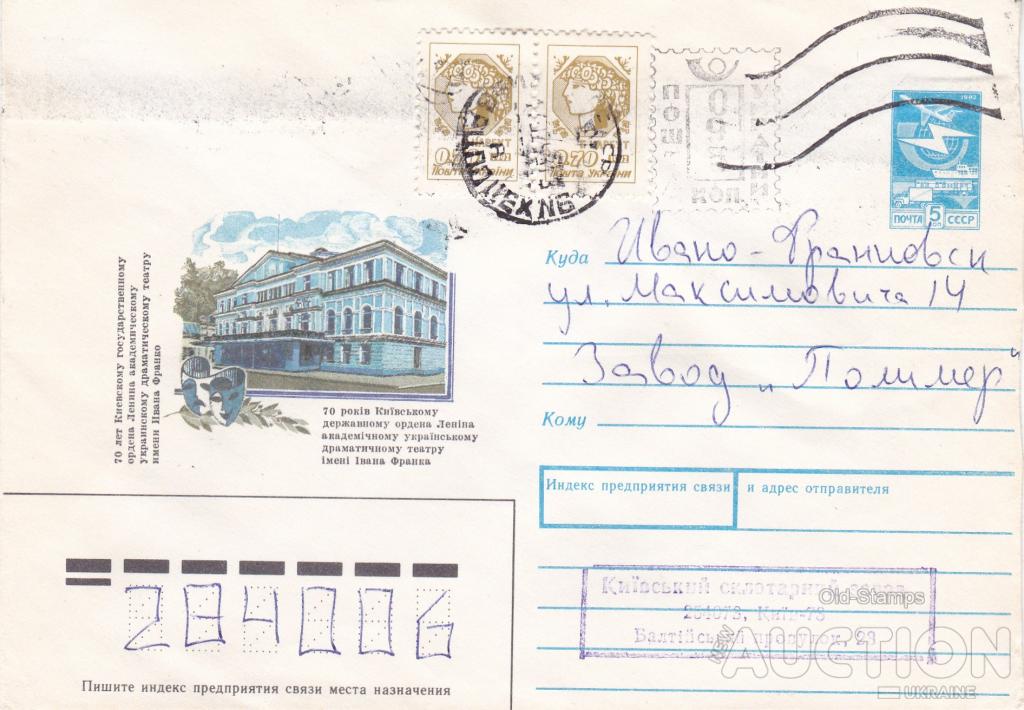 1982
ПОЧТА 5 КОП СССР
0.70 0.70
Пошта України Пошта України
коп
Куда Ивано-Франковск
ул. Максимовича 14
Завод "Полимер"
Кому
70 лет Киевскому государственному
ордена Ленина академическому
украинскому драматическому театру
имени Ивана Франко
70 років Київському
державному ордена Леніна
академічному українському
драматичному театру
імені Івана Франка
Индекс предприятия связи и адрес отправителя
284006
Пишите индекс предприятия связи места назначения
Київський склотарний завод
254073, Київ-73
Балтійський провулок, 23
Old-Stamps
NEW AUCTION
UKRAINE